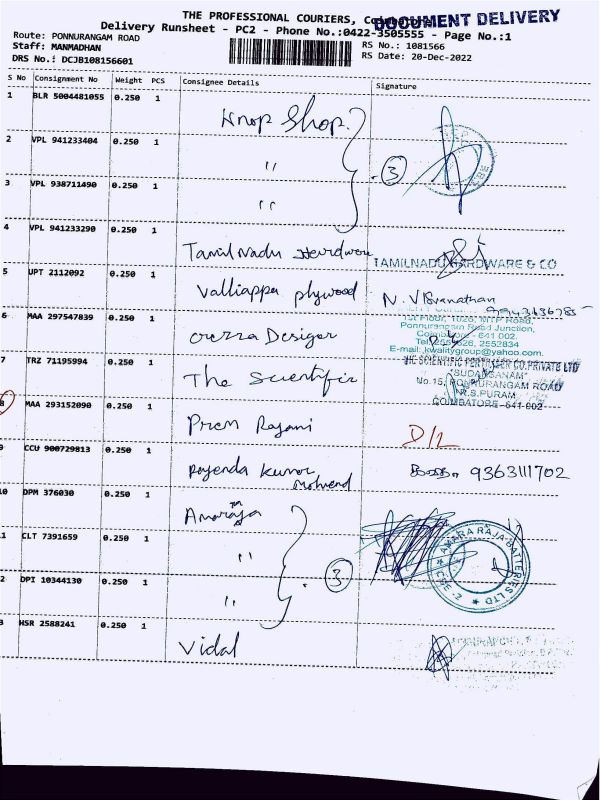 THE PROFESSIONAL COURIERS, Coimbatore
DOCUMENT DELIVERY
Delivery Runsheet - PC2 - Phone No.:0422-3505555 - Page No.:1
Route: PONNURANGAM ROAD
RS No.: 1081566
Staff: MANMADHAN
RS Date: 20-Dec-2022
DRS No.: DCJB108156601
S No Consignment No Weight PCS Consignee Details Signature
1 BLR 5004481055 0.250 1 Knop Shop.
2 VPL 941233404 0.250 1 "
3 VPL 938711490 0.250 1 "
3
4 VPL 941233290 0.250 1 Tamil Nadu
TAMILNADU HARDWARE & CO
5 UPT 2112092 0.250 1 Valliappa plywood
6 MAA 297547839 0.250 1
1st Floor, 1026, MTP Road,
Ponnurangam Road Junction,
Coimbatore - 641 002.
2553834
E-mail: kwalitygroup@yahoo.com.
7 TRZ 71195994 0.250 1 The Scientific
THE SCIENTIFIC FERTILISER CO.PRIVATE LTD
"SUDARSANAM"
No.15, PONNURANGAM ROAD
R.S.PURAM
COIMBATORE-641 002
8 MAA 293152090 0.250 1 Prem Rajani D/L
9 CCU 900729813 0.250 1 Rajenda Kumar 9363111702
10 DPM 376030 0.250 1 Amaraja
11 CLT 7391659 0.250 1 "
12 DPI 10344130 0.250 1 "
3
AMARA RAJA BATTERIES LTD
CBE-2
13 HSR 2588241 0.250 1 Vidal